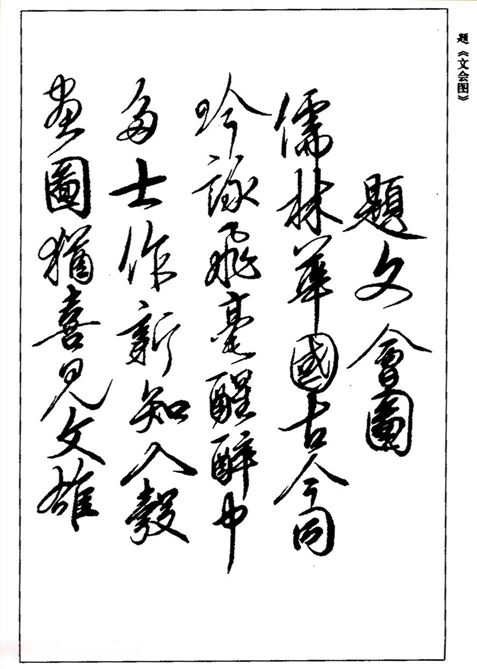 题《文会图》
題文會圖
儒林華國古今同
吟詠飛毫醒醉中
多士作新知入彀
畫圖猶喜見文雄